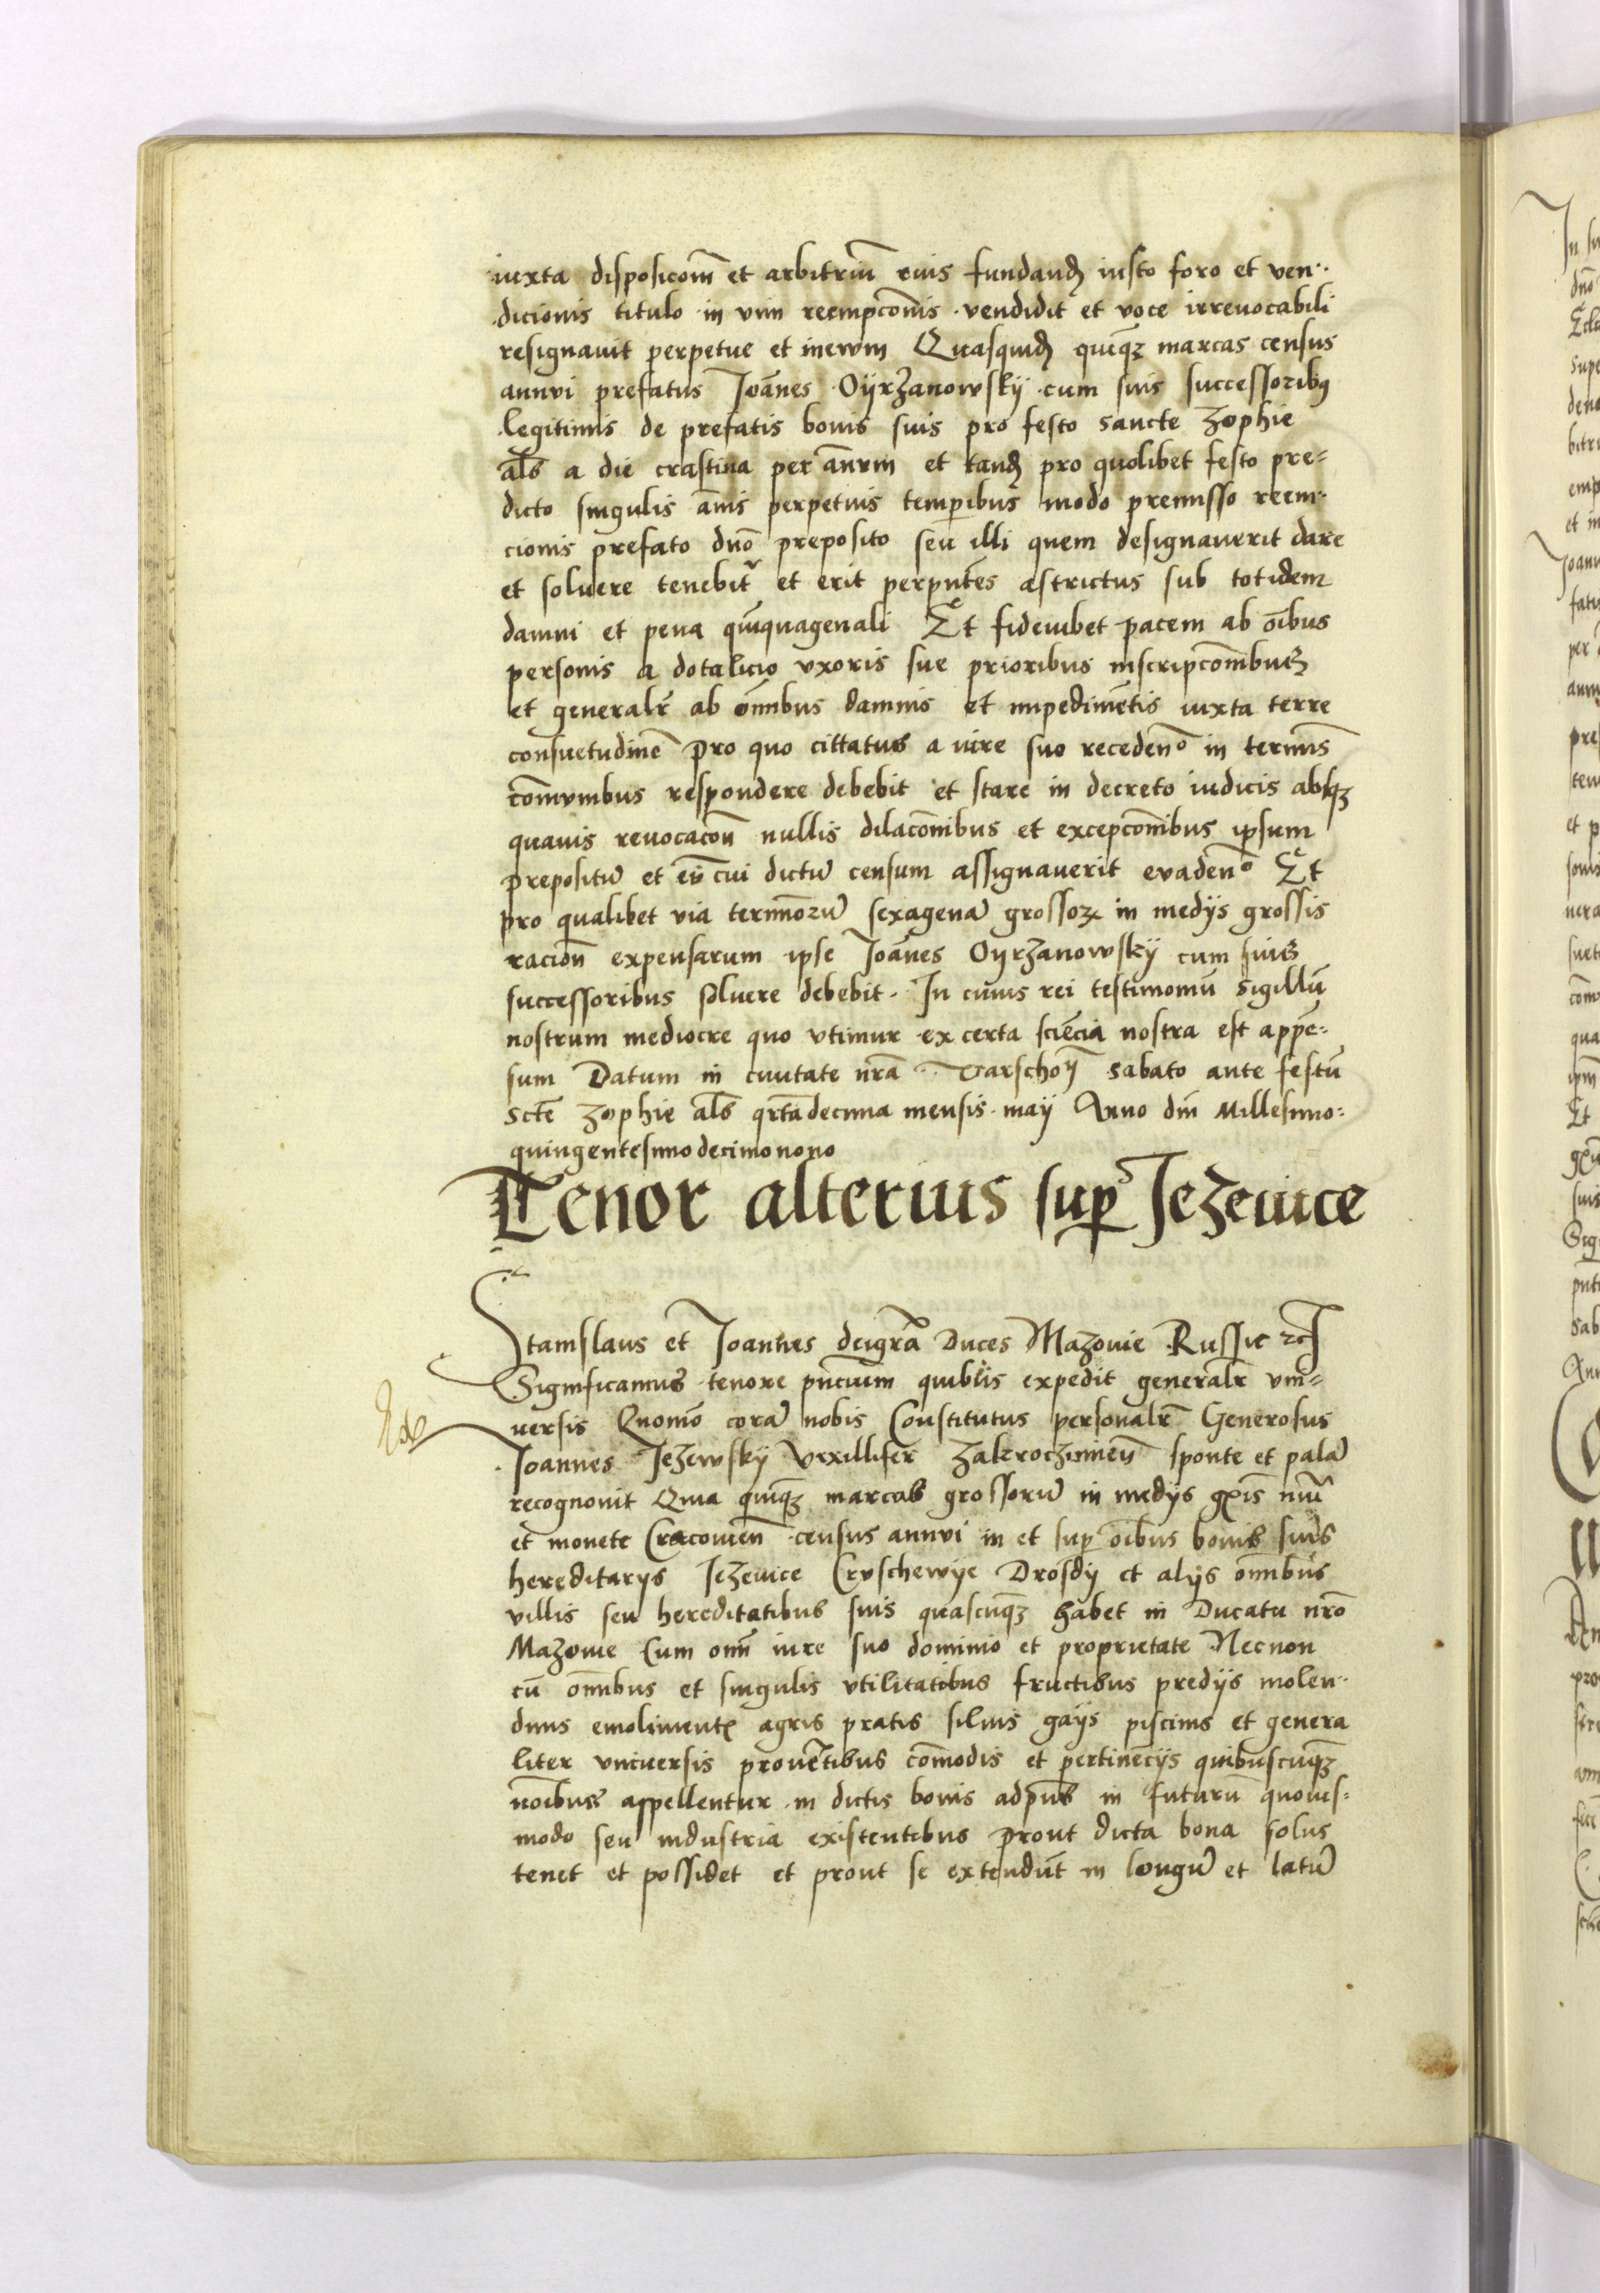 iuxta disposicom̄ et arbitriū eius fundand̄ iusto foro et ven-
dicionis titulo in vim reempcōnis vendidit et voce irreuocabili
resignauit perpetue et in ewm Quasquid̄ quīqȝ marcas census
annui prefatus Joānes Oÿrzanowskÿ cum suis successoribꝯ
legitimis de prefatis bonis suis pro festo sancte Zophie
als̄ a die crastina per ānum et tand̄ pro quolibet festo pre-
dicto singulis ānis perpetuis temꝑibus modo premisso reem-
cionis prefato dnō preposito seu illi quem designauerit dare
et soluere tenebitr et erit perpn̄tes astrictus sub totidem
damni et pena quīquagenali Et fideiubet pacem ab oībus
personis a dotalicio vxoris sue prioribus inscripcōnibus
et generalr̄ ab omībus damnis et impedimētis iuxta terre
consuetudinē pro quo cittatus a iure suo recedeno in termīs
cōmunibus respondere debebit et stare in decreto iudicis absqȝ
quauis reuocacōn nullis dilacōnibus et excepcōnibus ipsum
prepositū et eū cui dictū censum assignauerit evadeno Et
pro qualibet via terminorū sexagenā grossoꝝ in medÿs grossis
racion̄ expensarum ipse Joānes Oÿrzanowskÿ cum suis
successoribus soluere debebit. In cuius rei testimoniū sigillū
nostrum mediocre quo vtimur ex certa sciēcia nostra est appē-
sum Datum in ciuitate nrā Varschoū sabato ante festū
Sctē Zophie als̄ qrtādecima mensis maÿ Anno dnī Millesimo
quingentesimodecimonono
Tenor alterius suꝑ Jezeuice
Stanislaus et Joannes deigrā Duces Mazouie Russie ꝛc̄
Significamus tenore pn̄cium quibus expedit generalr̄ vni-
uersis Quomō corā nobis Constitutus personalr̄ Generosus
Joannes Jezewskÿ Vexillifer Zakroczimien̄ sponte et palā
recognouit Quia quīqȝ marcas grossorū in medÿs gr̄is nūi
et monete Cracouien̄ census annui in et suꝑ oībus bonis suis
hereditarÿs Jezeuice Cruschewÿe Drosdÿ et alÿs omībus
villis seu hereditatibus suis quascūqȝ habet in Ducatu nrō
Mazouie Cum omī iure suo dominio et proprietate Necnon
cū omībus et singulis vtilitatibus fructibus predÿs molen-
dinis emolimentꝭ agris pratis siluis gaÿs piscinis et genera
liter vniuersis prouētibus cōmodis et pertinēcÿs quibuscūqȝ
noībus appellentur in dictis bonis adpn̄s in futurū quouis-
modo seu industria existentibus prout dicta bona solus
tenet et possidet et prout se extendūt in longū et latū